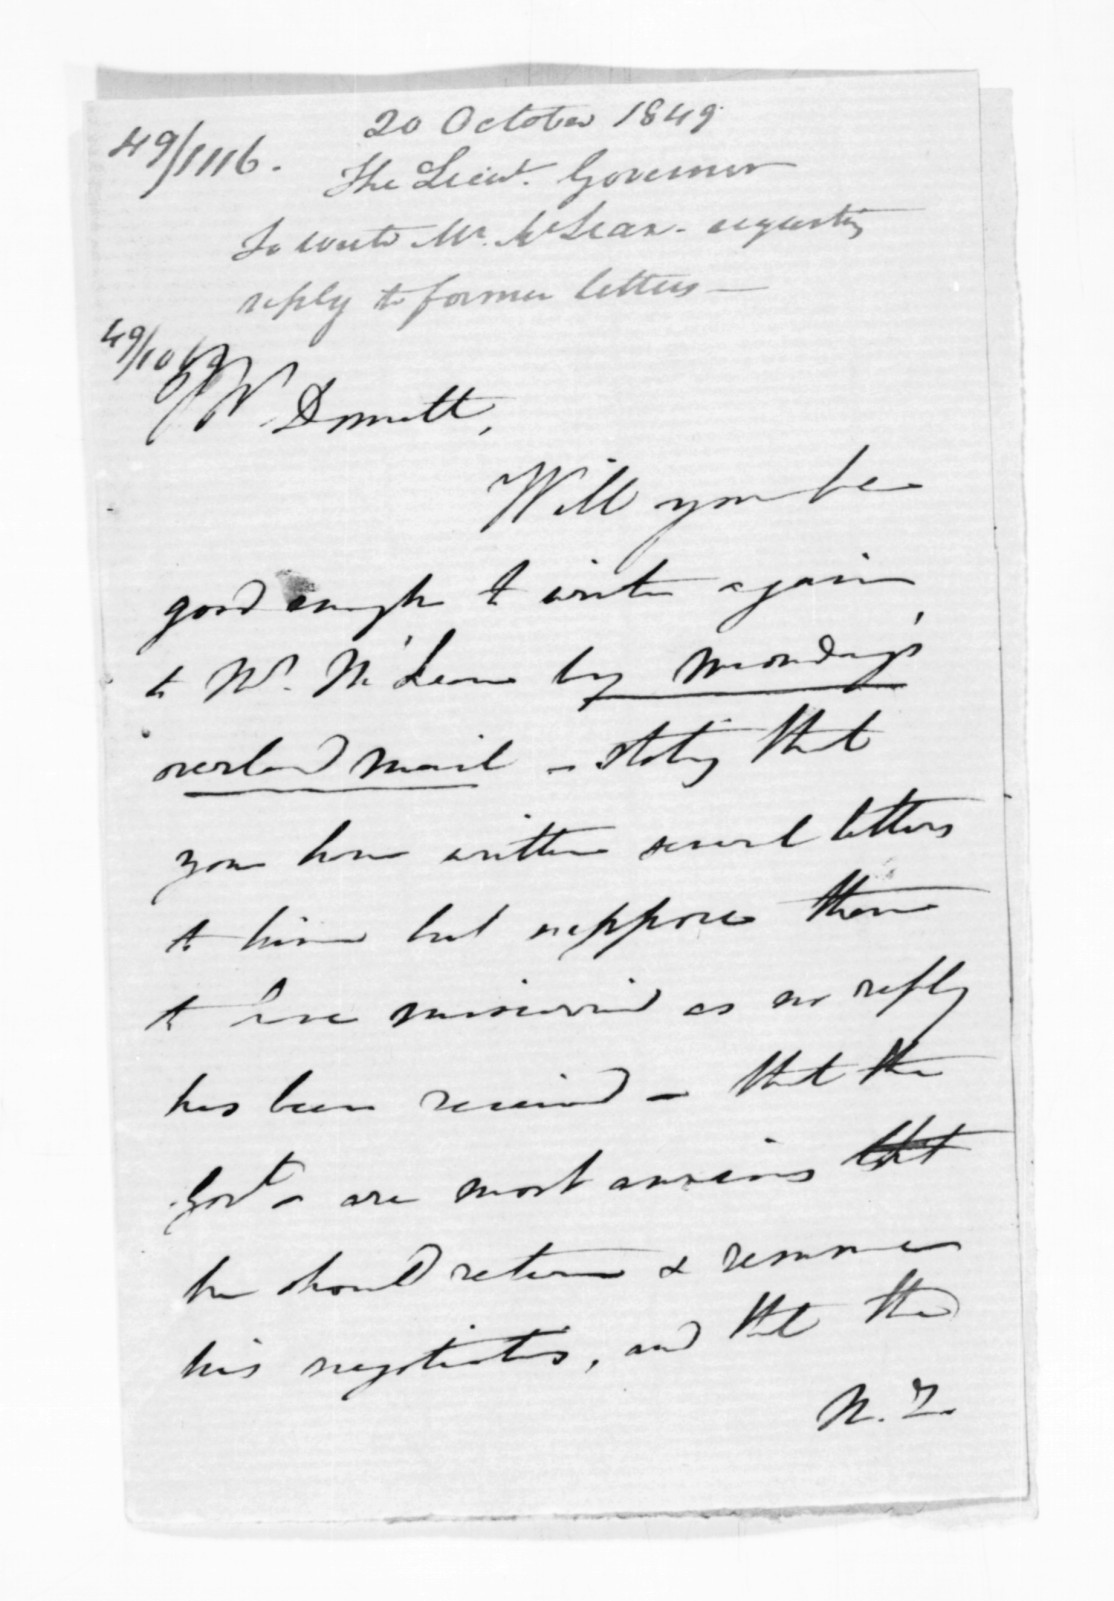 20 October 1849
49/1116.
The Lieut. Governor
To write Mr. McLean - requesting
reply to former letters —
49/10
Mr Domett,
Will you be
good enough to write again
to Mr. McLean by Monday's
overland mail - stating that
you have written several letters
to him but suppose them
to have miscarried as no reply
has been received - that the
Govt - are most anxious that
he should return & resume
his negotiations, and that the
N. Z.